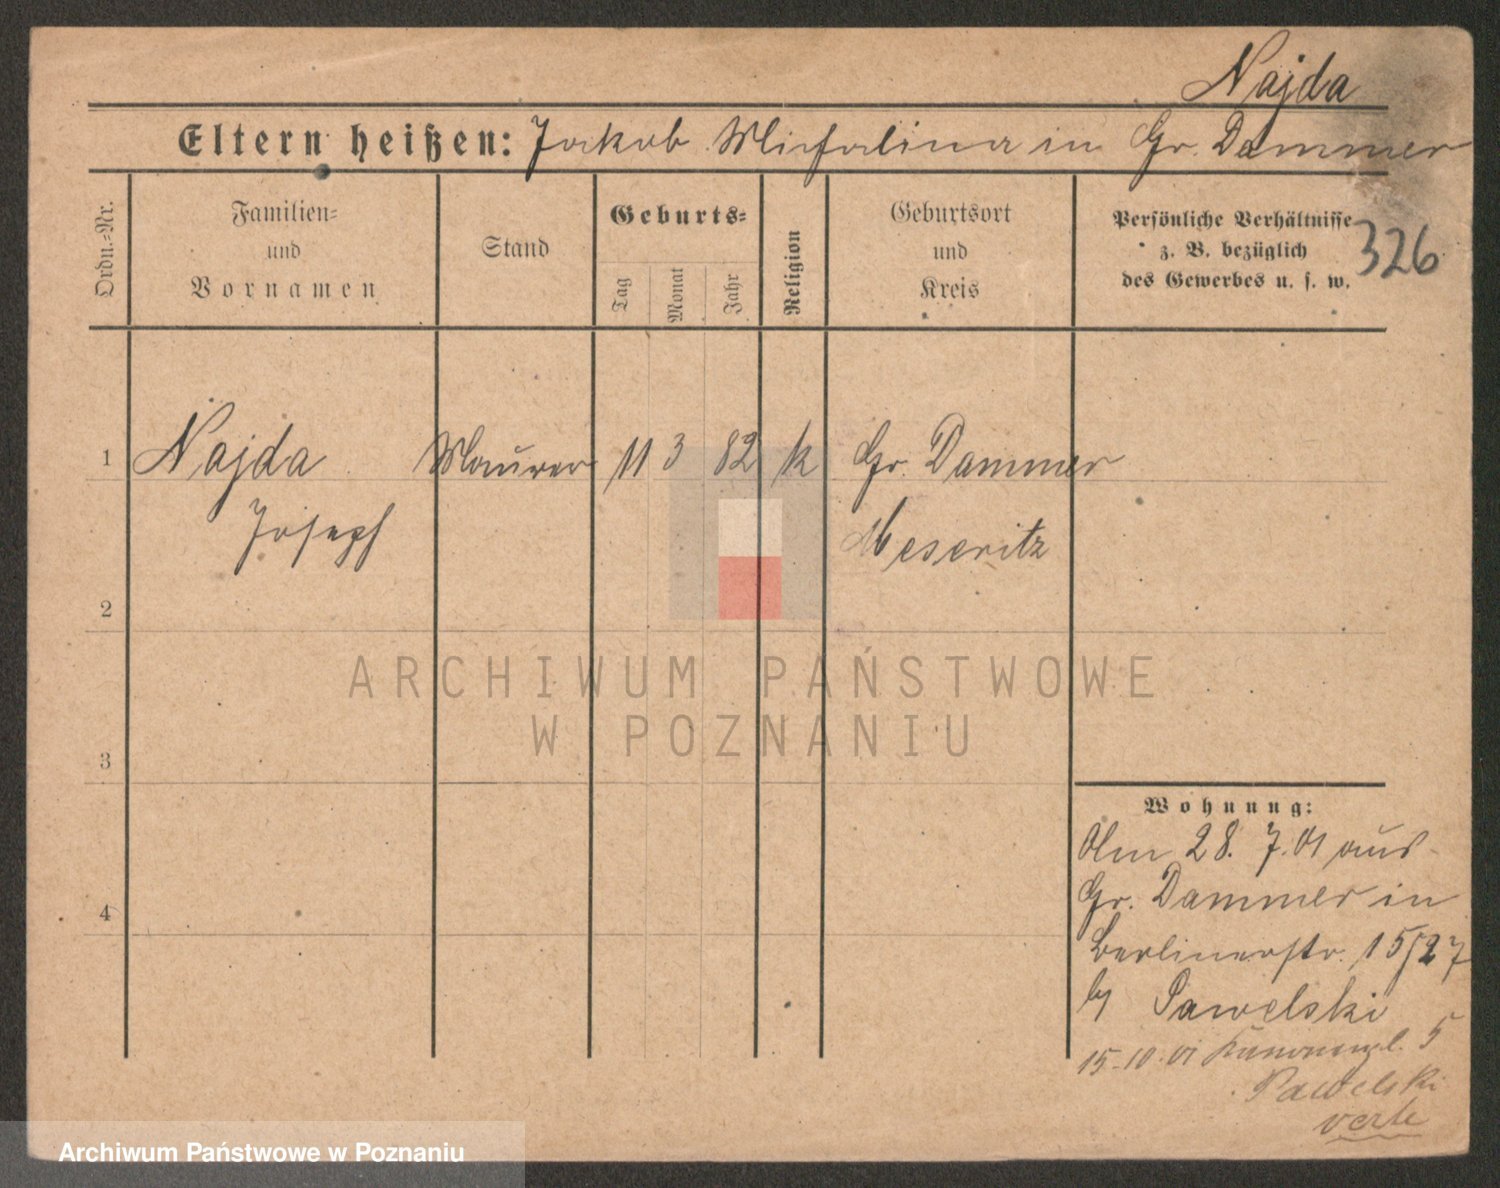 Najda
Eltern heißen: Jakob Michalina in Gr. Dammer
Ordn.-Nr.
Familien-
und
Vornamen
Stand
Geburts-
Tag
Monat
Jahr
Religion
Geburtsort
und
Kreis
Persönliche Verhältnisse
z. B. bezüglich
des Gewerbes u. s. w.
326
1 Najda Maurer 11 3 82 k Gr. Dammer
Joseph Meseritz
2
3
4
ARCHIWUM PAŃSTWOWE
W POZNANIU
Wohnung:
Am 28. 7. 01 aus
Gr. Dammer in
Berlinerstr. 15/27
by Pawelski
15-10.01 5
Pawelski
Archiwum Państwowe w Poznaniu